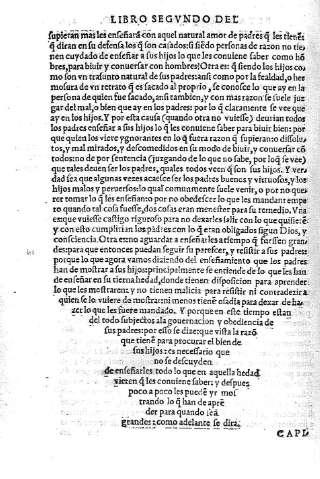 LIBRO SEGVNDO DEL
supieran mas les enseñarã con aquel natural amor de padres q̃ les tienẽ
q̃ diran en su defensa los q̃ son casados: si siẽdo personas de razon no tie-
nen cuydado de enseñar a sus hijos lo que les conuiene saber como hõ
bres, para biuir y conuersar con hombres? Otra es: q̃ siendo los hijos co-
mo son vn trasunto natural de sus padres: ansi como por la fealdad, o her
mosura de vn retrato q̃ es sacado al proprio, se conosce lo que ay en la
persona de quien fue sacado, ansi tambien, y con mas razon se suele juz-
gar del mal, o bien que ay en los padres: por lo q̃ claramente se vee que
ay en los hijos. Y por esta causa (quando otra no vuiesse) deurian todos
los padres enseñar a sus hijos lo q̃ les conuiene saber para biuir bien: por
que quien los viere ygnorantes en lo q̃ fuera razon q̃ supieran: o dissolu-
tos, y mal mirados, y descomedidos en su modo de biuir, y conuersar cõ
todos: no de por sentencia (juzgando de lo que no sabe, por loq̃ se vee)
que tales deuen ser los padres, quales todos veen q̃ son sus hijos. Y ver
dad sea que algunas vezes acaesce ser los padres buenos y virtuosos, y los
hijos malos y peruersos: lo qual communmente suele venir, o por no que
rer tomar lo q̃ les enseñan: o por no obedescer lo que les mandan: empe
ro quando tal cosa fuesse, dos cosas eran menester para su remedio. Vna
es que vuiesse castigo riguroso para no dexarles salir con lo que quisierẽ:
y con esto cumplirian los padres con lo q̃ eran obligados segun Dios, y
consciencia. Otra es: no aguardar a enseñarles a tiempo q̃ fuessen gran-
des: para que entonces puedan seguir su parescer, y resistir a sus padres:
porque lo que agora vamos diziendo del enseñamiento que los padres
han de mostrar a sus hijos: principalmente se entiende de lo que les han
de enseñar en su tierna hedad, donde tienen disposicion para aprender
lo que les mostraren: y no tienen malicia para resistir ni contradezir a
quien se lo vuiere de mostrar: ni menos tienẽ osadia para dexar de ha-
zer lo que les fuere mandado. Y porque en este tiempo estan
del todo subjectos ala gouernacion y obediencia de
sus padres: por esso se dize: que vista la razõ
que tienẽ para procurar el bien de
sus hijos: es necessario que
no se descuyden
de enseñarles todo lo que en aquella hedad
vieren q̃ les conuiene saber: y despues
poco a poco les puedẽ yr mos
trando lo q̃ han de apre
der para quando seã
grandes: como adelante se dira.
CAPI.